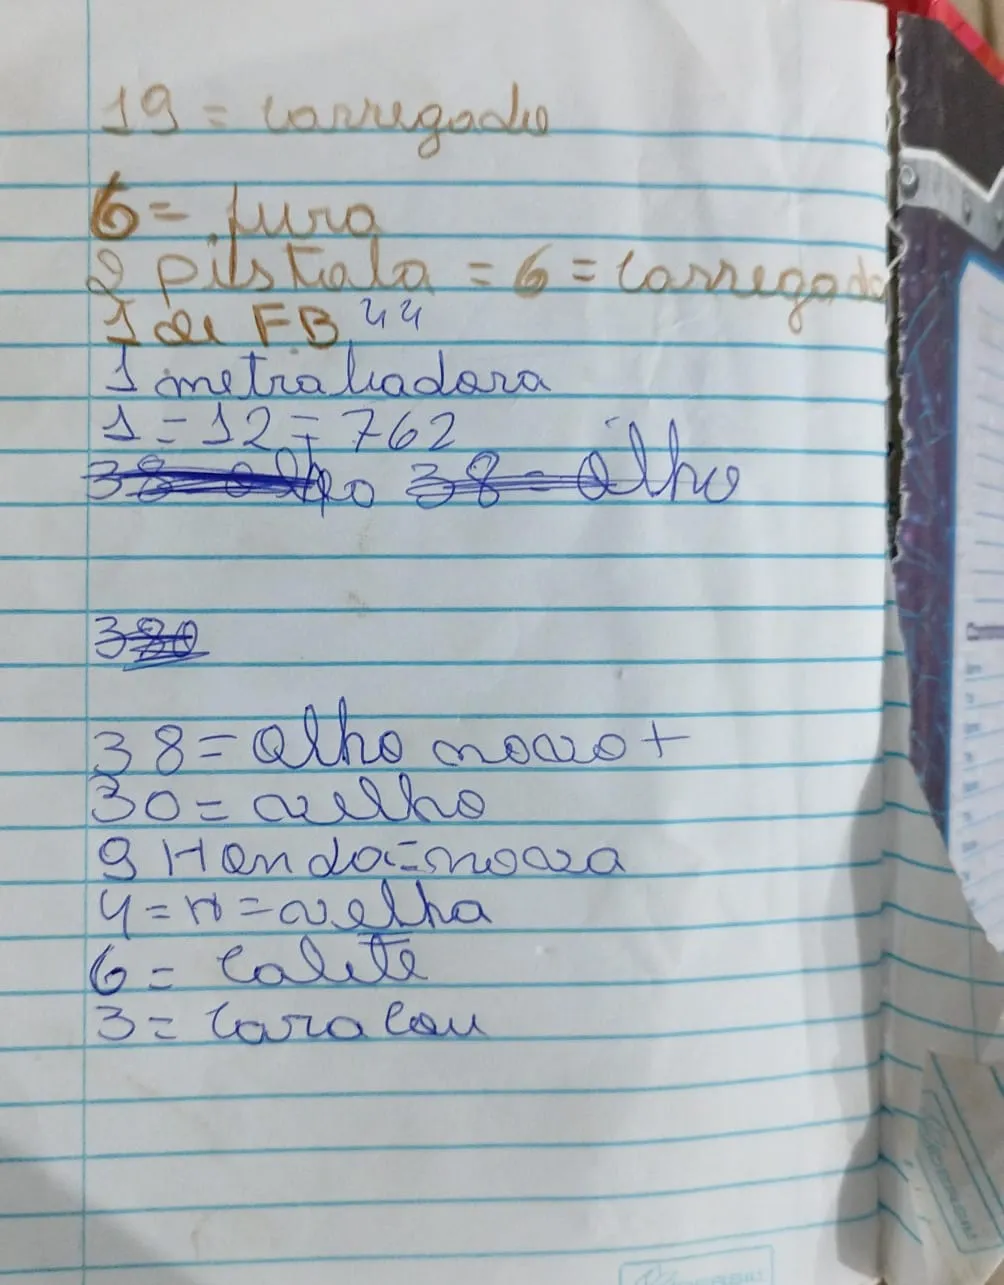 19 = carregado
6 = fura
2 pistiala = 6 = carregado
1 de F.B 44
1 metraliadora
1 = 12 = 762
38 olho 38 - olho
380
38 = olho novo +
30 = velho
9 Honda = nova
4 = H = velha
6 = Colete
3 = Cara cou